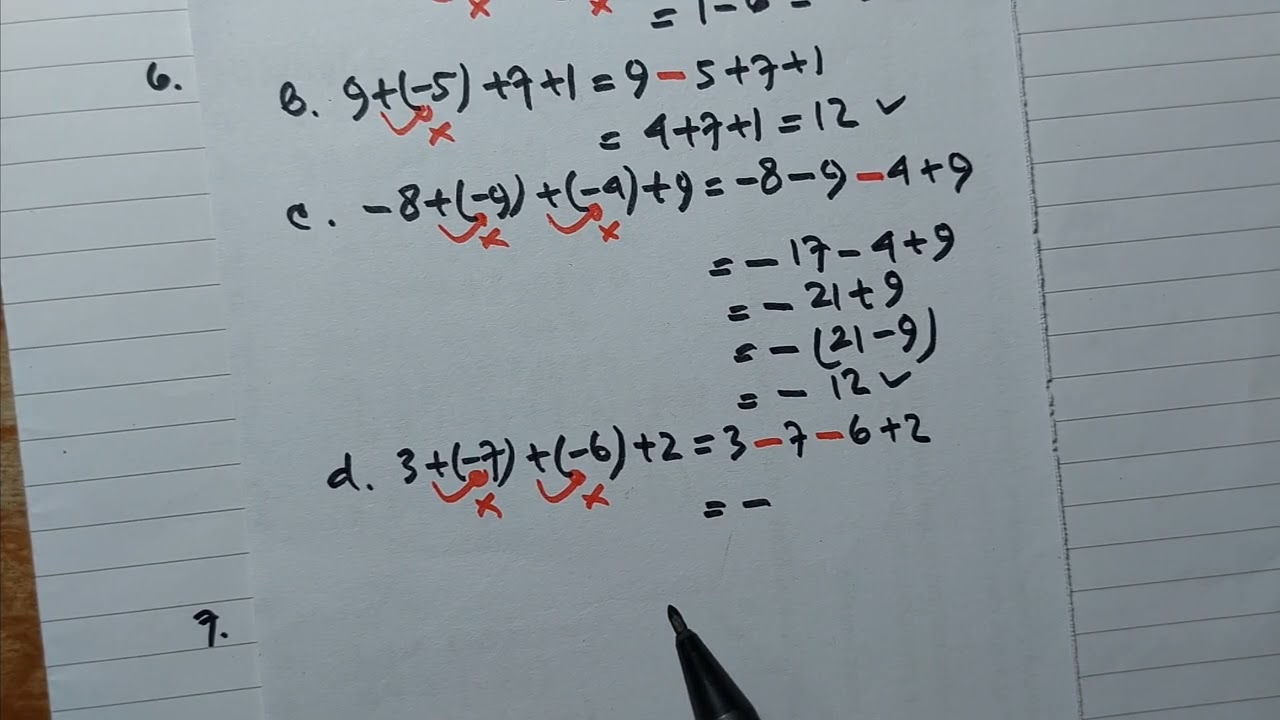 = 1 - 6 =
6.
B. 9+(-5)+7+1 = 9 - 5+7+1
= 4+7+1 = 12 ✓
c. -8+(-9)+(-4)+9 = -8-9-4+9
= -17-4+9
= -21+9
= -(21-9)
= -12 ✓
d. 3+(-7)+(-6)+2 = 3-7-6+2
= -
7.